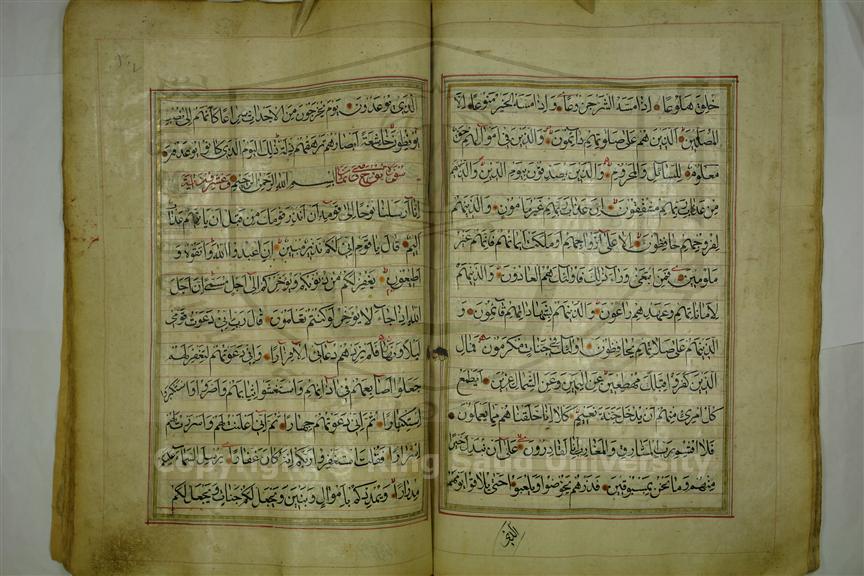 خلق هلوعا اذا مسه الشر جزوعا واذا مسه الخير منوعا الا
المصلين الذين هم على صلوتهم دائمون والذين في اموالهم حق
معلوم للسائل والمحروم والذين يصدقون بيوم الدين والذينهم
من عذاب ربهم مشفقون ان عذاب ربهم غير مامون والذينهم
لفروجهم حافظون الا على ازواجهم او ملكت ايمانهم فانهم غير
ملومين فمن ابتغى وراء ذلك فاولئك هم العادون والذينهم
لاماناتهم وعهدهم راعون والذينهم بشهاداتهم قائمون و
الذينهم على صلاتهم يحافظون اولئك في جنات مكرمون فمال
الذين كفروا قبلك مهطعين عن اليمين وعن الشمال عزين ايطمع
كل امرئ منهم ان يدخل جنة نعيم كلا انا خلقناهم مما يعلمون
فلا اقسم برب المشارق والمغارب انا لقادرون على ان نبدل خيرا
منهم وما نحن بمسبوقين فذرهم يخوضوا ويلعبوا حتى يلاقوا يومهم
الذي يوعدون يوم يخرجون من الاجداث سراعا كانهم الى نصب
يوفضون خاشعة ابصارهم ترهقهم ذلة ذلك اليوم الذي كانوا يوعدون
سورة نوح بسم الله الرحمن الرحيم وعشرون اية
انا ارسلنا نوحا الى قومه ان انذر قومك من قبل ان ياتيهم عذاب
اليم قال يا قوم اني لكم نذير مبين ان اعبدوا الله واتقوه و
اطيعون يغفر لكم من ذنوبكم ويؤخركم الى اجل مسمى ان اجل
الله اذا جاء لا يؤخر لو كنتم تعلمون قال رب اني دعوت قومي
ليلا ونهارا فلم يزدهم دعائي الا فرارا واني دعوتهم لتغفر لهم
جعلوا اصابعهم في اذانهم واستغشوا ثيابهم واصروا واستكبروا
استكبارا ثم اني دعوتهم جهارا ثم اني اعلنت لهم واسررت لهم
اسرارا فقلت استغفروا ربكم انه كان غفارا يرسل السماء عليكم
مدرارا ويمددكم باموال وبنين ويجعل لكم جنات ويجعل لكم